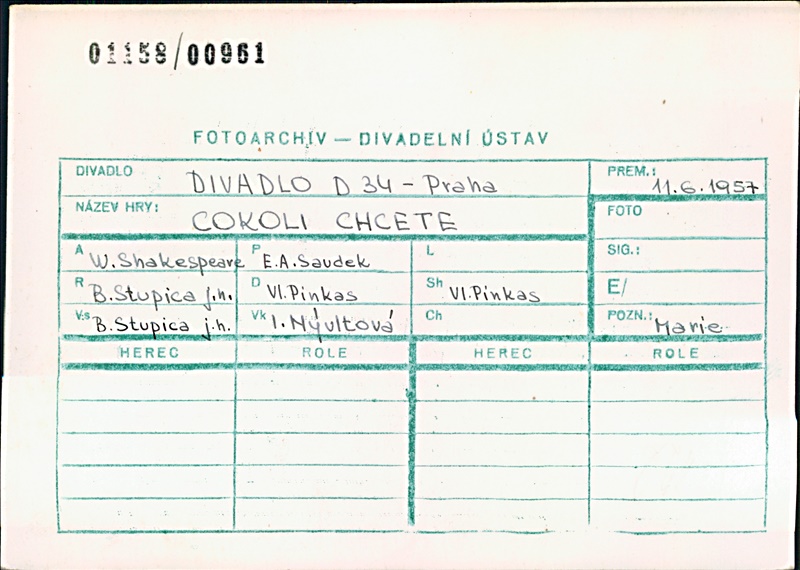 01158/00961
FOTOARCHIV — DIVADELNÍ ÚSTAV
DIVADLO DIVADLO D 34 - Praha PREM.: 11.6.1957
NÁZEV HRY: COKOLI CHCETE FOTO
A W. Shakespeare P E.A. Saudek L SIG.:
R B. Stupica j.h. D Vl. Pinkas Sh Vl. Pinkas E/
Vs B. Stupica j.h. Vk I. Nývltová Ch POZN.: Marie
HEREC ROLE HEREC ROLE